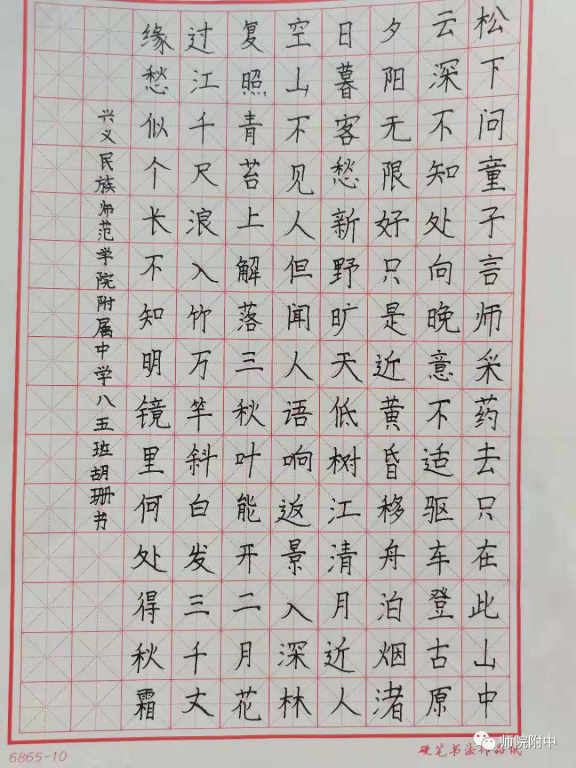 松下问童子言师采药去只在此山中
云深不知处向晚意不适驱车登古原
夕阳无限好只是近黄昏移舟泊烟渚
日暮客愁新野旷天低树江清月近人
空山不见人但闻人语响返景入深林
复照青苔上解落三秋叶能开二月花
过江千尺浪入竹万竿斜白发三千丈
缘愁似个长不知明镜里何处得秋霜
兴义民族师范学院附属中学八五班胡珊书
6865-10
硬笔书法作品纸
师院附中